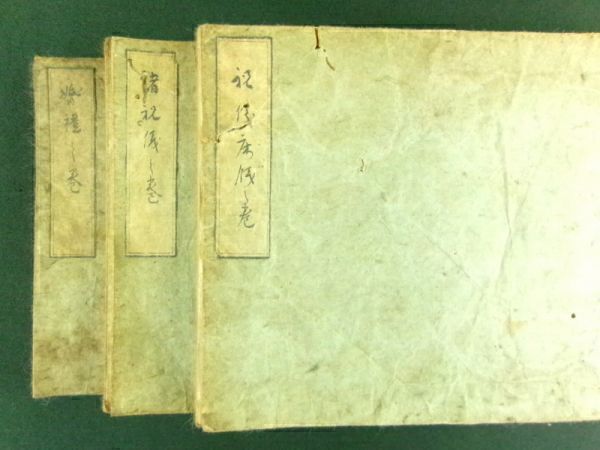 祝儀床餝之巻
諸祝儀之巻
婚禮之巻